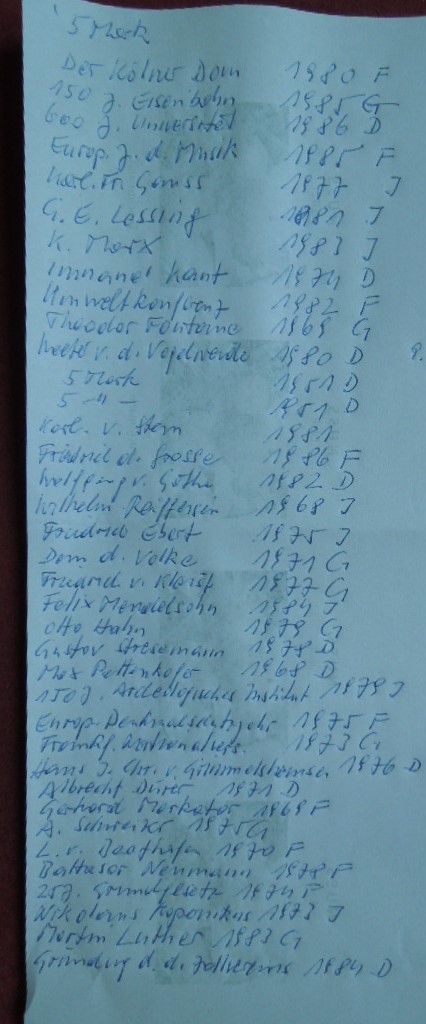 5 Mark
Der Kölner Dom 1980 F
150 J. Eisenbahn 1985 G
600 J. Universität 1986 D
Europ. J. d. Musik 1985 F
Karl. Fr. Gauss 1977 J
G. E. Lessing 1981 J
K. Marx 1983 J
Imanuel Kant 1974 D
Umweltkonferenz 1982 F
Theodor Fontane 1969 G
Walter v. d. Vogelweide 1980 D
5 Mark 1951 D
5 -"- 1951 D
Karl. v. Stein 1981
Friedrich d. Grosse 1986 F
Wolfgang v. Göthe 1982 D
Wilhelm Raiffeisen 1968 J
Friedrich Ebert 1975 J
Dem d. Volke 1971 G
Friedrich v. Kleist 1977 G
Felix Mendelsohn 1984 J
Otto Hahn 1979 G
Gustav Stresemann 1978 D
Max Pettenkofer 1968 D
150 J. Archeologisches Institut 1979 J
Europ. Denkmalschutzjahr 1975 F
Frankf. Nationalvers. 1973 G
Hans J. Chr. v. Grimmelshausen 1976 D
Albrecht Dürer 1971 D
Gerhard Merkator 1969 F
A. Schweitzer 1975 G
L. v. Beethofen 1970 F
Baltasar Neumann 1978 F
25 J. Grundgesetz 1974 F
Nikolaus Koponikus 1973 J
Martin Luther 1983 G
Gründung d. d. Zollvereins 1984 D